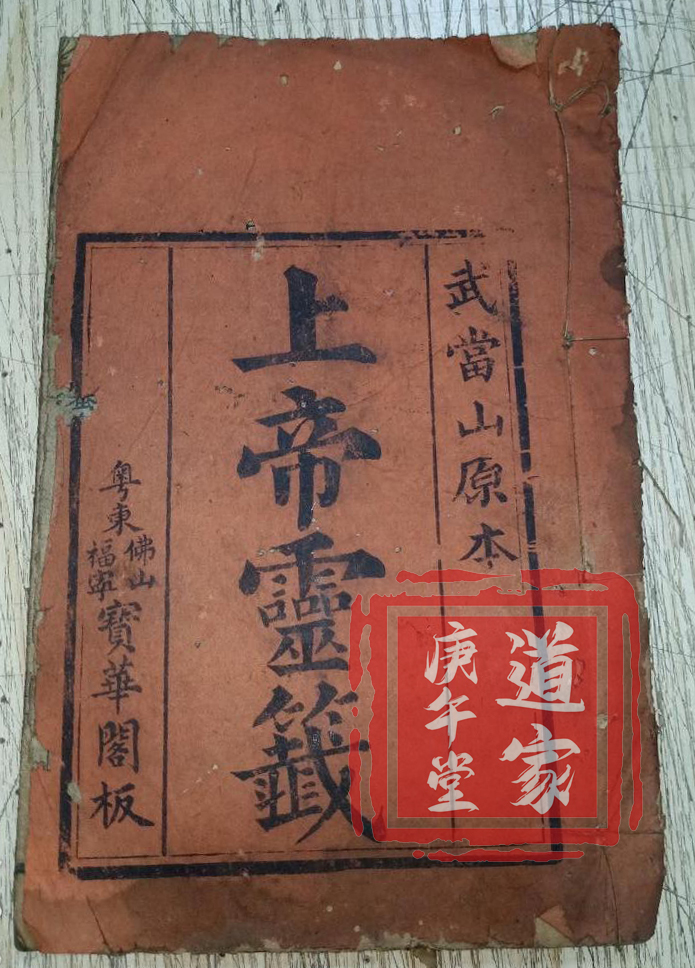 武當山原本
上帝靈籤
粤東佛山福寧寶華閣板
道家
庚午堂